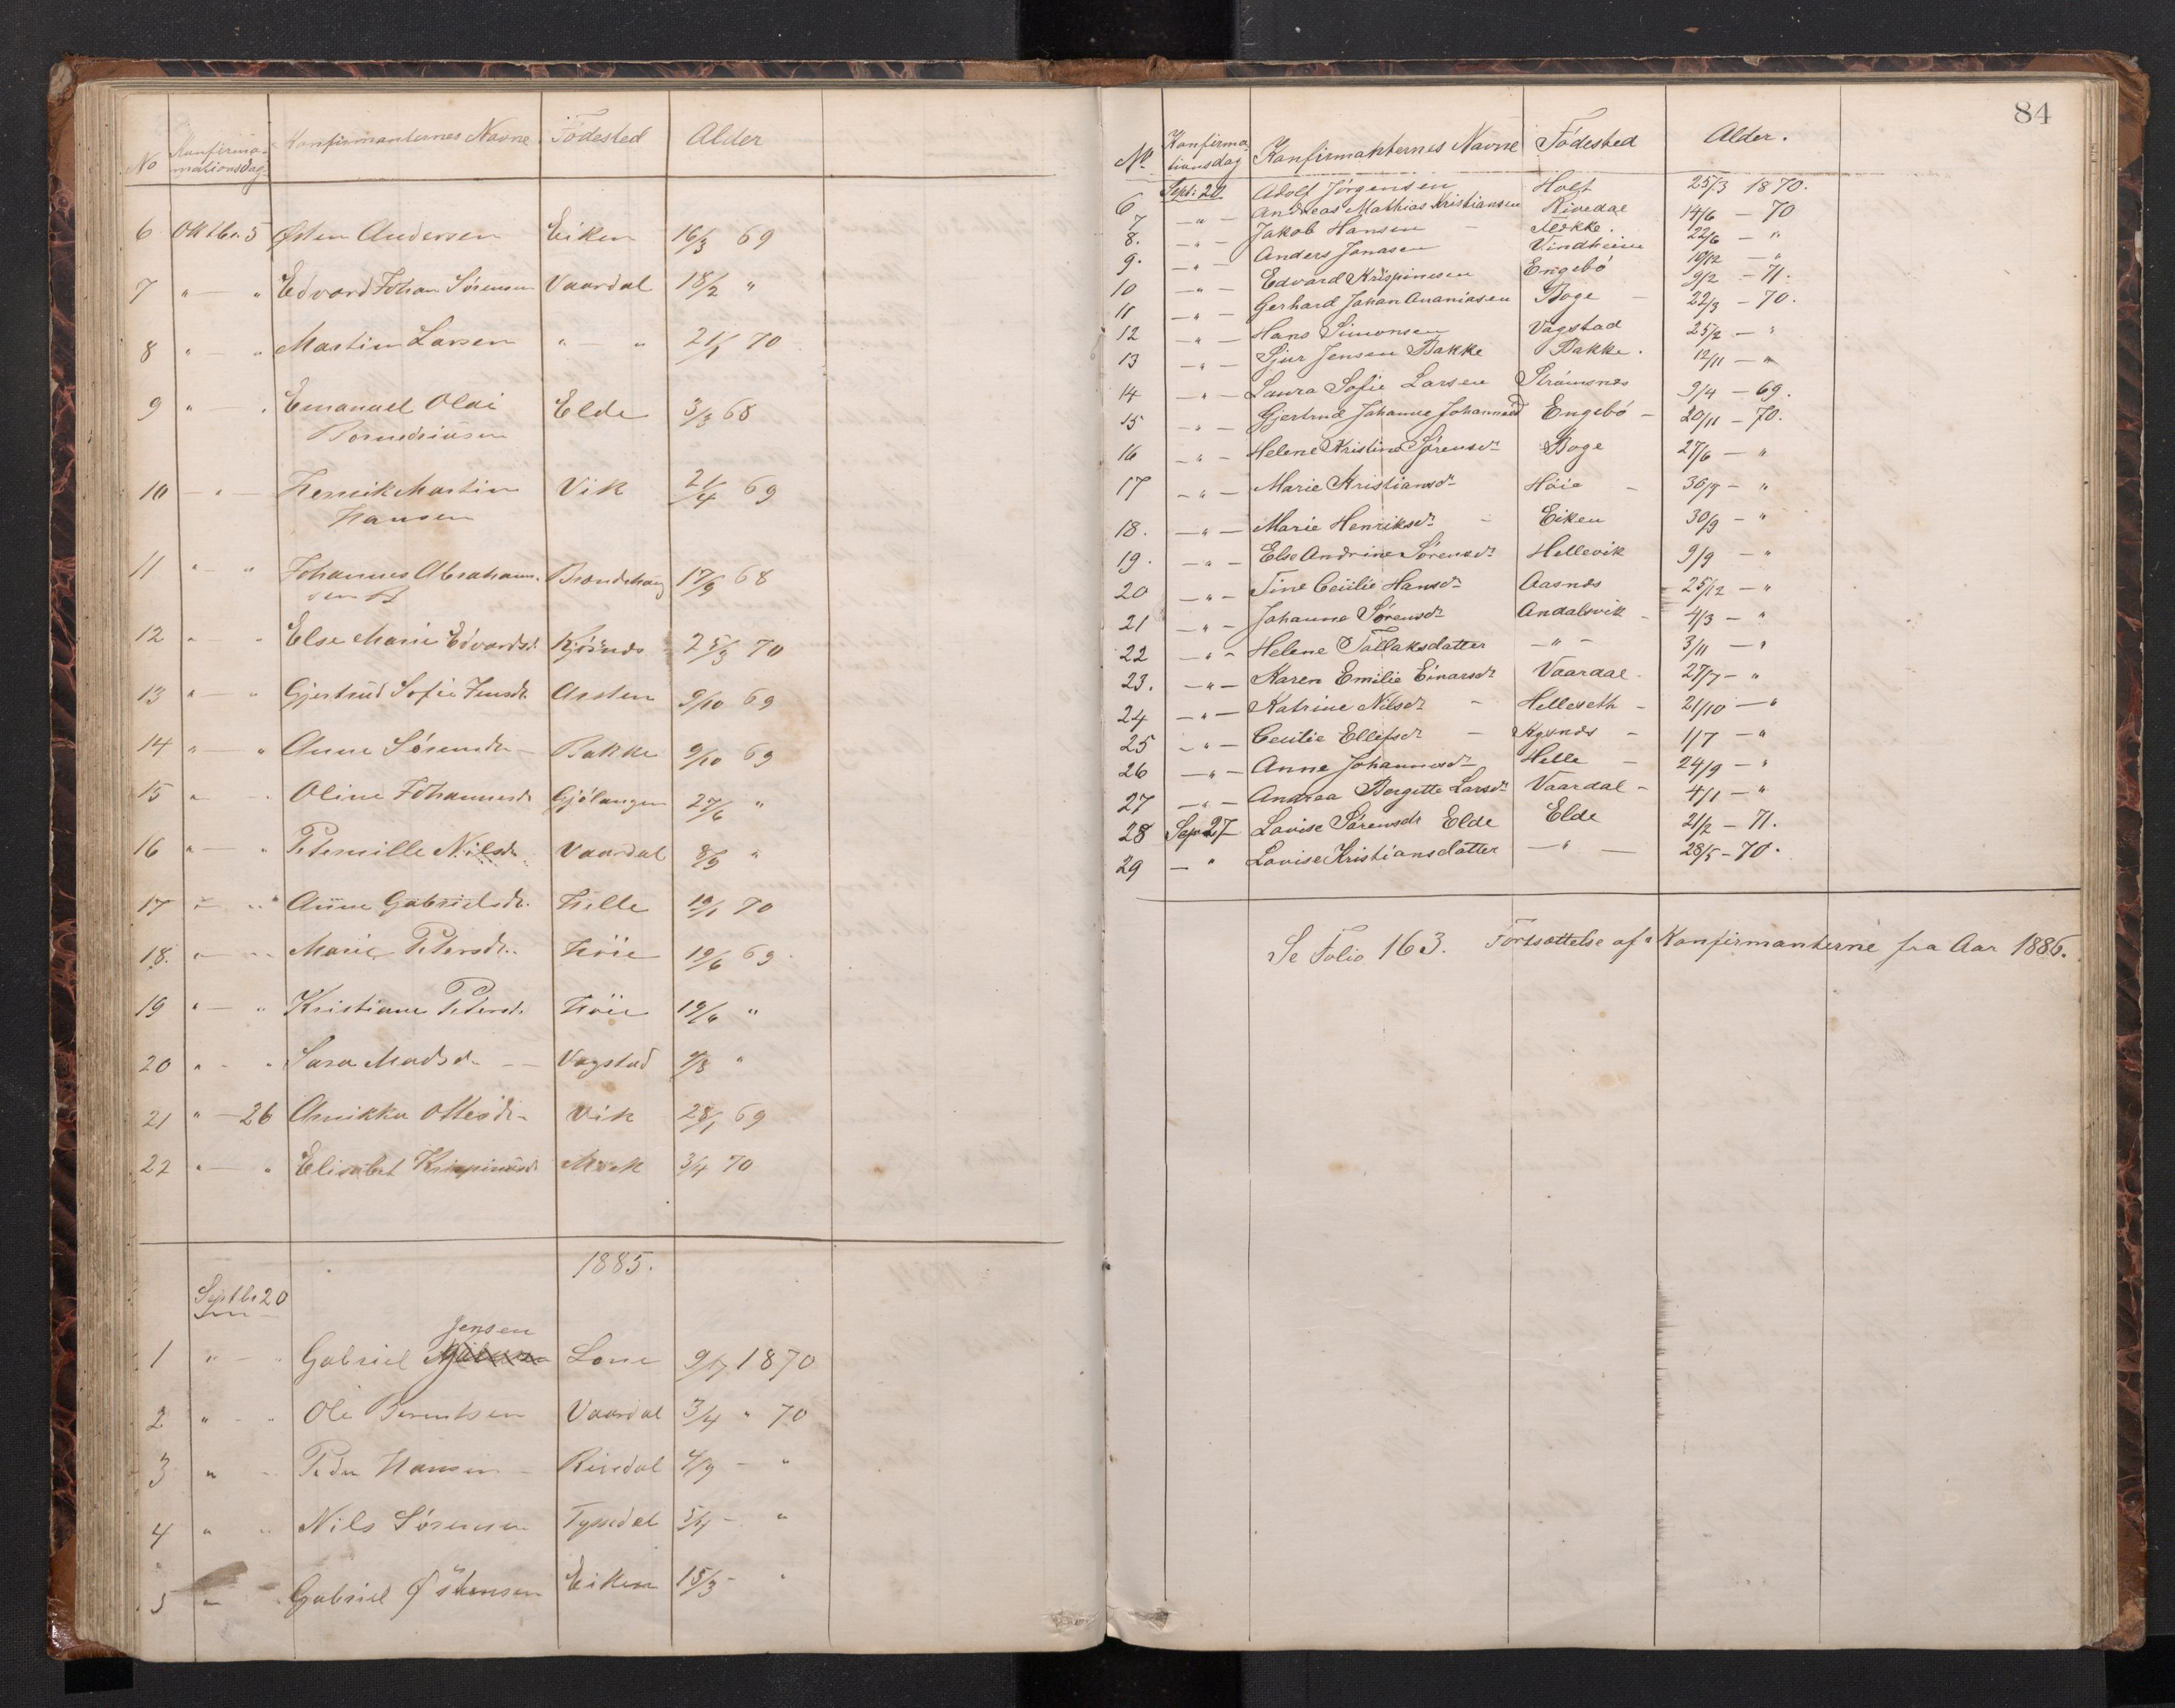 No Konfirma- Konfirmanternes Navne Fødested Alder
mationsdag
6 Oktbr. 5 Østen Andersen Eiken 16/3 69
7 " — " Edvard Johan Sørensen Vaardal 18/2 "
8 " — " Martin Larsen " — " 21/1 70
9 " — " Emanuel Olai Elde 3/3 68
10 — " — Henrik Martin Vik 21/4 69
Hansen
11 " — " Johannes Abraham- Brandehaug 17/9 68
sen
12 " " Else Marie Edvardsd. Kjøsnds 25/3 70
13 " — " Gjertrud Sofie Jensdr. Arsten 9/10 69
14 " — " Anne Sørensdr — Bakke 9/10 69
15 " - Oline Johannesdr Gjølangen 27/6 "
16 " — " Peternille Nilsdr. Vaardal 8/9 "
17 " " Anne Gabrielsdr. Helle 19/1 70
18. " — " Marie Petersdr. Høie 19/6 69
19 " — " Kristiane Petersd. Høie 19/6 "
20 " - " Sara Madsd. — Vagstad 9/8 "
21 " — 26 Annikka Ottesdr. Vik 28/1 69
22 " — " Elisabet Krispinusd. 3/4 70
1885.
Septbr 20
Jensen
1 " — " Gabriel Lone 9/7 1870
2 " - " Ole Berentsen Vaardal 3/4 " 70
3 " - Peder Hansen — Rivedal 4/9 — "
4 " " Nils Sørensen Tyssedal 5/4 — "
5 " Gabriel Østensen Eiken 15/3 — "
84
No. Konfirma- Konfirmanternes Navne Fødested Alder.
tionsdag
6 Sept. 20 Adolf Jørgensen Holt 25/3 1870.
7 — " — Andreas Mathias Kristiansen Rivedal 14/6 — 70
8. — " — Jakob Hansen — Flekke. 22/6 — "
9. — " — Anders Jonasen Vindheim 10/12 — "
10 — " — Edvard Krispinusen Engebø 9/2 — 71.
11 — " — Gerhard Johan Ananiasen Boge — 22/3 — 70.
12 — " — Hans Simonsen Vagstad 25/2 — "
13 — " — Sjur Jensen Bakke Bakke. 12/11 — "
14 — " — Laura Sofie Larsen Strømsnes 9/4 — 69.
15 — " — Gjertrud Johanne Johannesd Engebø — 20/11 — 70.
16 — " — Helene Kristine Sørensdr Boge 27/6 — "
17 — " — Marie Kristiansdr Høie — 30/7 — "
18. — " — Marie Henriksdr — Eiken 30/9 — "
19. — " — Else Andrine Sørensdr Hellevik 9/9 — "
20 — " — Tine Cecilie Hansdr Aasnds 25/12 — "
21 — " — Johanne Sørensdr Andalsvik — 4/3 — "
22 — " — Helene Tallaksdatter — " — 3/11 — "
23. — " — Karen Emilie Einarsdr Vaardal — 27/7 — "
24 — " — Katrine Nilsdr — Helleseth — 21/10 — "
25 — " — Cecilie Ellefsdr — Kjøsnds — 1/7 — "
26 — " — Anne Johannesdr Helle — 24/9 — "
27 — " — Andrea Bergitte Larsdr Vaardal — 4/1 — "
28 Sept 27 Lovise Sørensdr Elde Elde 21/2 — 71.
29 — " Lovise Kristiansdatter — " — 28/5 — 70.
Se Folio 163. Fortsættelse af Konfirmanterne fra Aar 1886.